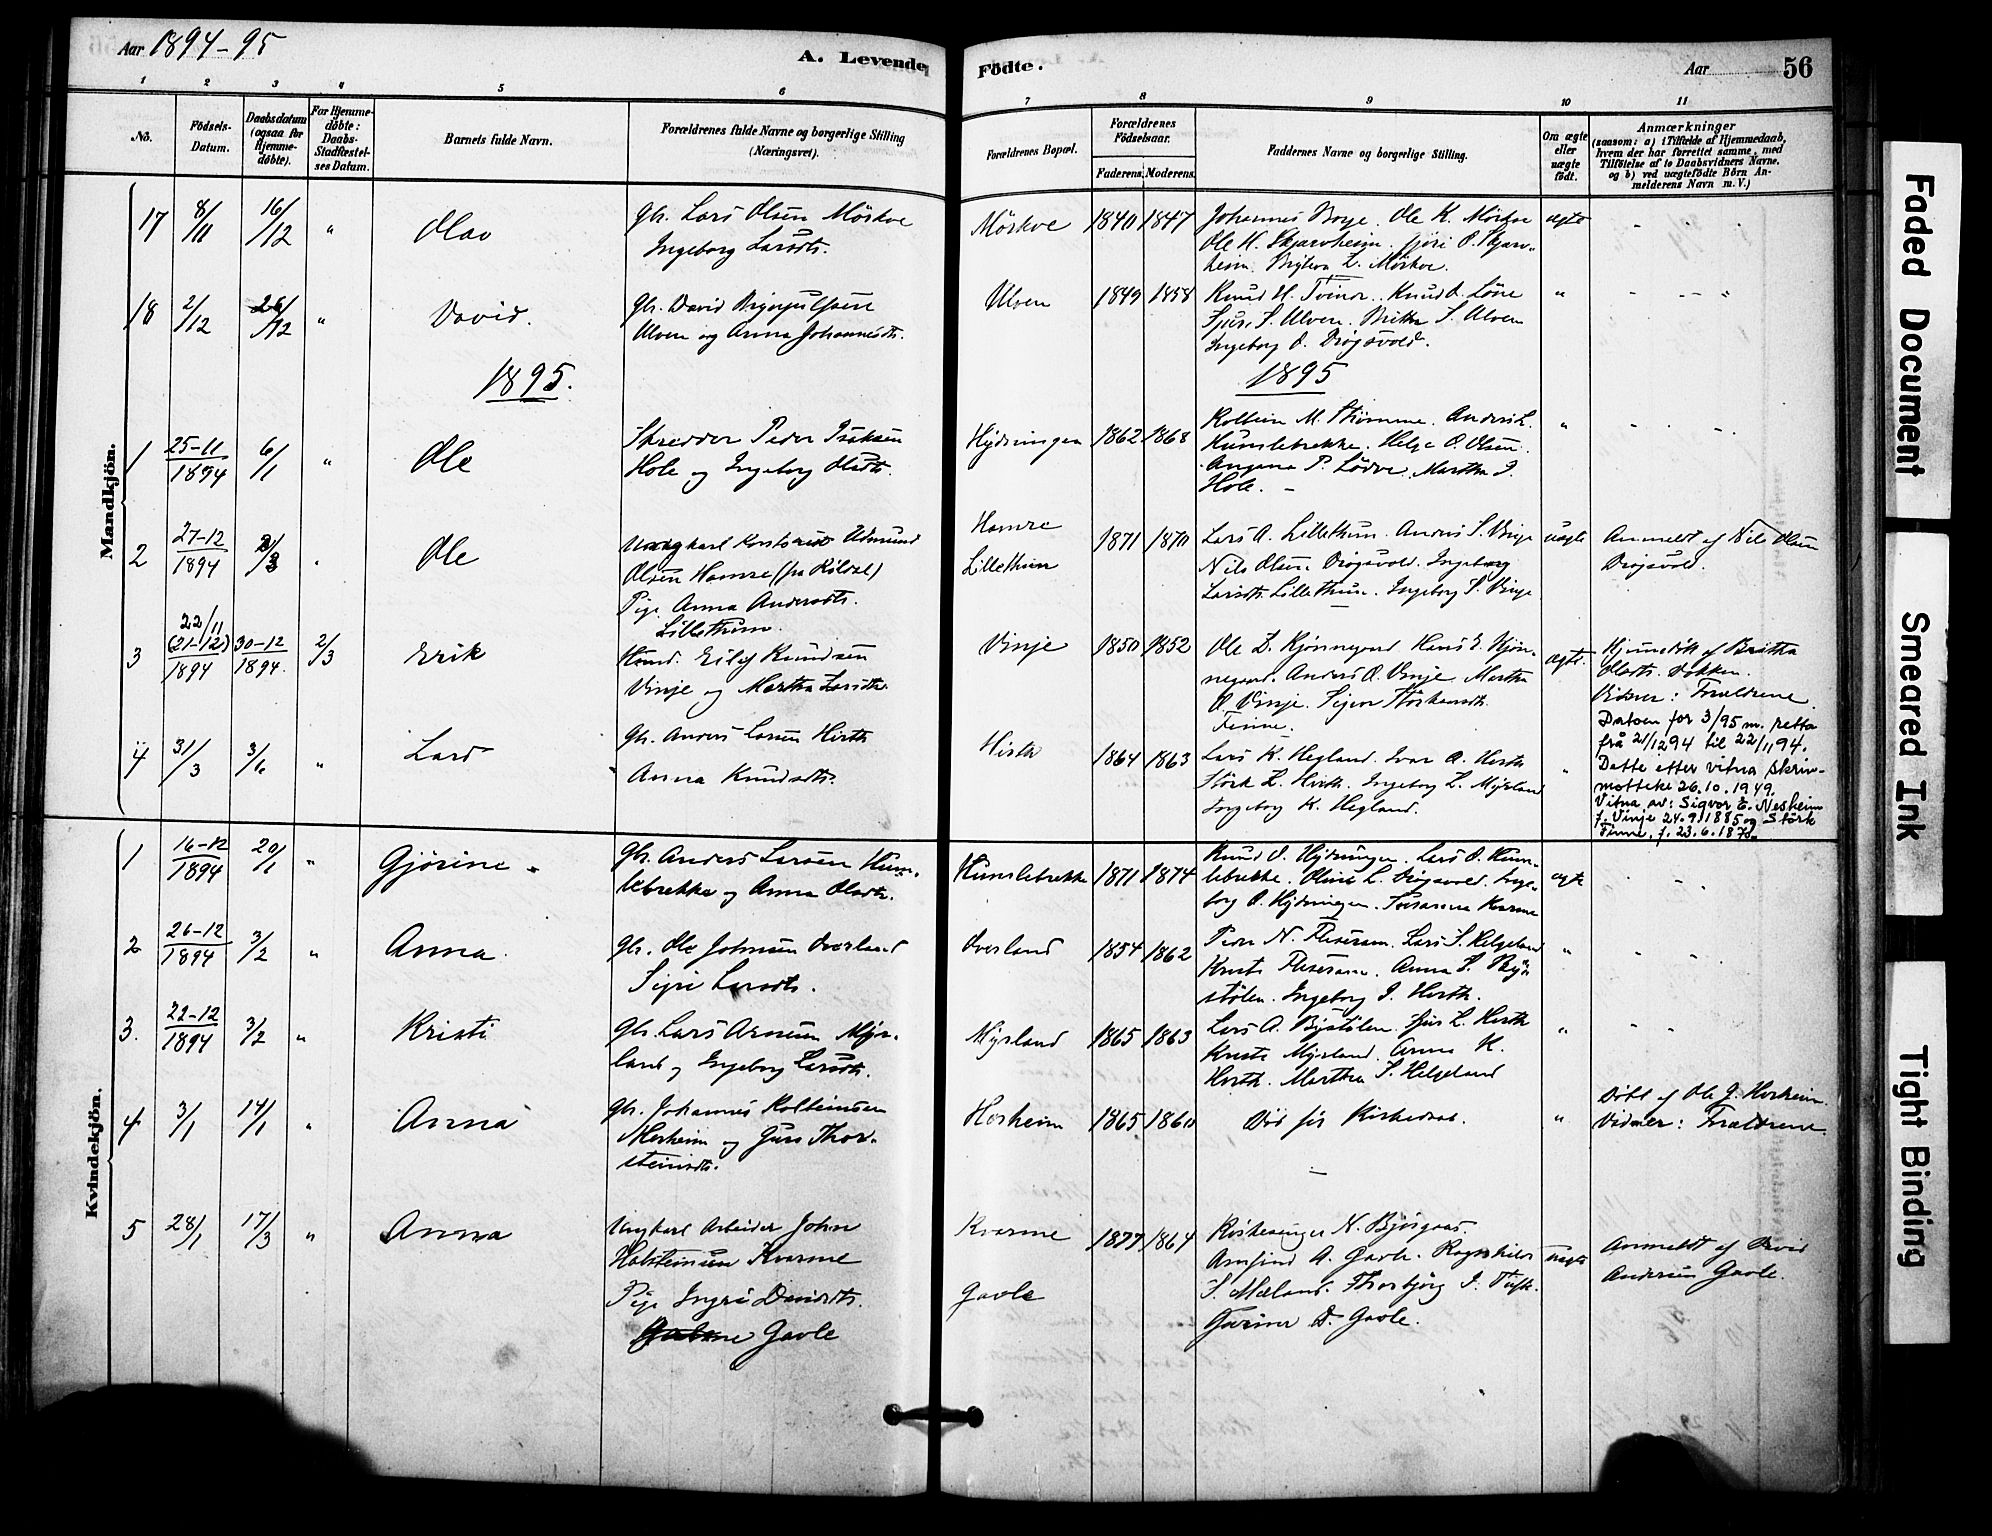 Aar 1894-95
A. Levende Födte.
Aar 56
1 2 3 4 5 6 7 8 9 10 11
No.
Födsels-Datum.
Daabsdatum (ogsaa for Hjemme-döbte).
For Hjemme-döbte: Daabs-Stadfæstel-ses Datum.
Barnets fulde Navn.
Forældrenes fulde Navne og borgerlige Stilling (Næringsvei).
Forældrenes Bopæl.
Forældrenes Födselsaar.
Faderens. Moderens.
Faddernes Navne og borgerlige Stilling.
Om ægte eller uægte födt.
Anmærkninger
(saasom: a) i Tilfælde af Hjemmedaab,
hvem der har forrettet samme, med
Tilföielse af to Daabsvidners Navne,
og b) ved uægtefödte Börn An-
melderens Navn m. V.)
Mandkjön.
17 8/11 16/12 " Olav
Gbr. Lars Olsen Mörkve
Ingeborg Larsdtr.
Mörkve 1840 1847
Johannes Ole K. Mörkve
Ole H. Skjervheim.
heim. L. Mörkve.
ægte
18 2/12 26/12 " David.
Gbr. David Brynjulfsen
Ulven og Anna Johannesdtr.
Ulven 1849 1858
Knud H. Tvinde. Knud O. Löne
Sjur S. Ulven. Britha S. Ulven
Ingeborg O. Drögsvold.
"
1895.
1895
1 25-11/1894 6/1 " Ole
Skredder Peder Isaksen
Hole og Ingeborg Olsdtr.
1862 1868
Kolbein M. Anders L.
Humlebrekke. Helge O. Olsen.
P. Lödve. Martha I.
Hole.
"
2 27-12/1894 Ole
Ungkarl Admund
Olsen Hamre
Pige Anna Andersdtr.
Lillethun.
Hamre
Lillethun
1871 1870
Lars A. Lillethun. Anders S. Vinje
Nils Olsen Drögsvold. Ingeborg
Larsdtr. Lillethun. Ingeborg S. Vinje
uægte
Anmeldt af Nils Olsen
Drögsvold.
3 22/11 (21-12)/1894 30-12/1894. 2/3 Erik
Eilef Knudsen
Vinje og Martha Larsdtr.
Vinje 1850 1852
Ole L. Kjönnegard Hans E. Kjön-
negard. Anders O. Vinje Martha
O. Vinje. Sigvor
Finne.
ægte.
Hjemdöbt af Britha
Olsdtr. Dokken.
Vidner: Forældrene
Datoen for 3/95 m. retta
frå 21/12 94 til 22/11 94.
Dette etter vitna skriv-
motteke 26.10.1949.
Vitna av: Sigvor E. Nesheim
f. Vinje 24.9.1885 og Störk
Finne, f. 23.6.1870
4 31/3 3/6 " Lars
Gbr. Anders Larsen Hirth
Anna Knudsdtr.
Hirth 1864 1863
Lars K. Hegland. Ivar A. Hirth
Störk L. Hirth. Ingeborg L. Mýrland
Ingeborg K. Hegland.
"
Kvindekjön.
1 16-12/1894 20/1 " Gjörine
Gbr. Anders Larsen Hum-
lebrekke og Anna Olsdtr.
Humlebrekke 1871 1874
Knud O. Lars O. Hum-
lebrekke. Oline L. Drögsvold. Inge-
borg O.
ægte
2 26-12/1894 3/2 " Anna.
Gbr. Ole Johnsen Överland
Sigri Larsdtr.
Överland 1854 1862
Peder N. Lars S. Helgeland
Anna S. Bÿ-
stölen. Ingeborg I. Hirth.
"
3. 22-12/1894 3/2 " Kristi
Gbr. Lars Arnesen Mýr-
land og Ingeborg Larsdtr.
Mýrland 1865 1863
Lars A. Býstölen. Sjur L. Hirth
Kristi Mýrland. Anna K.
Hirth. Martha S. Helgeland
"
4 3/1 14/1 " Anna
Gbr. Johannes Kolbeinsen
Herheim og Guro Thor-
steinsdtr.
Herheim 1865 1860
Död för Kirkedaab.
"
Döbt af Ole J. Herheim.
Vidner: Forældrene.
5 28/1 17/3 " Anna
Ungkarl Arbeider John
Holsteinsen Kvarme
Pige Ingri Davidsdtr.
Gavle
Kvarme
Gavle
1877 1864
Kirkesanger N. Björgaas
Arnfind A. Gavle. Ragnhild
S. Mæland. Thorbjörg I. Tufte.
D. Gavle.
uægte
Anmeldt af David
Andersen Gavle.
Faded Document
Smeared Ink
Tight Binding